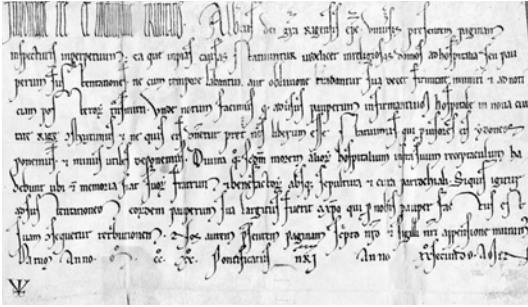 Albertus dei gra Rigensis epc. Universis presentem paginam
inspecturis inperpetuum. ea que inpias causas statuuntur videlicet inreligiosas domos ad hospitalia seu pau
perum sustentatione ne cum tempore labantur aut oblivione tradantur sua decet firmitate muniri et ad noti
ciam posteror transmitti. Unde notum facimus q ad usus pauperum infirmantium hospitale in nova civi
tate Rige construximus et ne quis ei dnetur preter nos liberum esse statuimus qui priores ei ydoneos
ponemus et minus utiles deponemus. Divina morem alior hospitalium infra suum receptaculum ha
bebunt ubi et memoria fiat suor fratrum et benefactor absque sepultura et cura parrochiali. Siquis igitur
ad sustentationem eordem pauperum sua largitus fuerit a xpo qui p nobis pauper factus est
suam consequetur retributionem. Nos autem psentem paginam scpto nro et sigilli nri appensione munimus
Datum Anno cc xx Pontificatus nri Anno